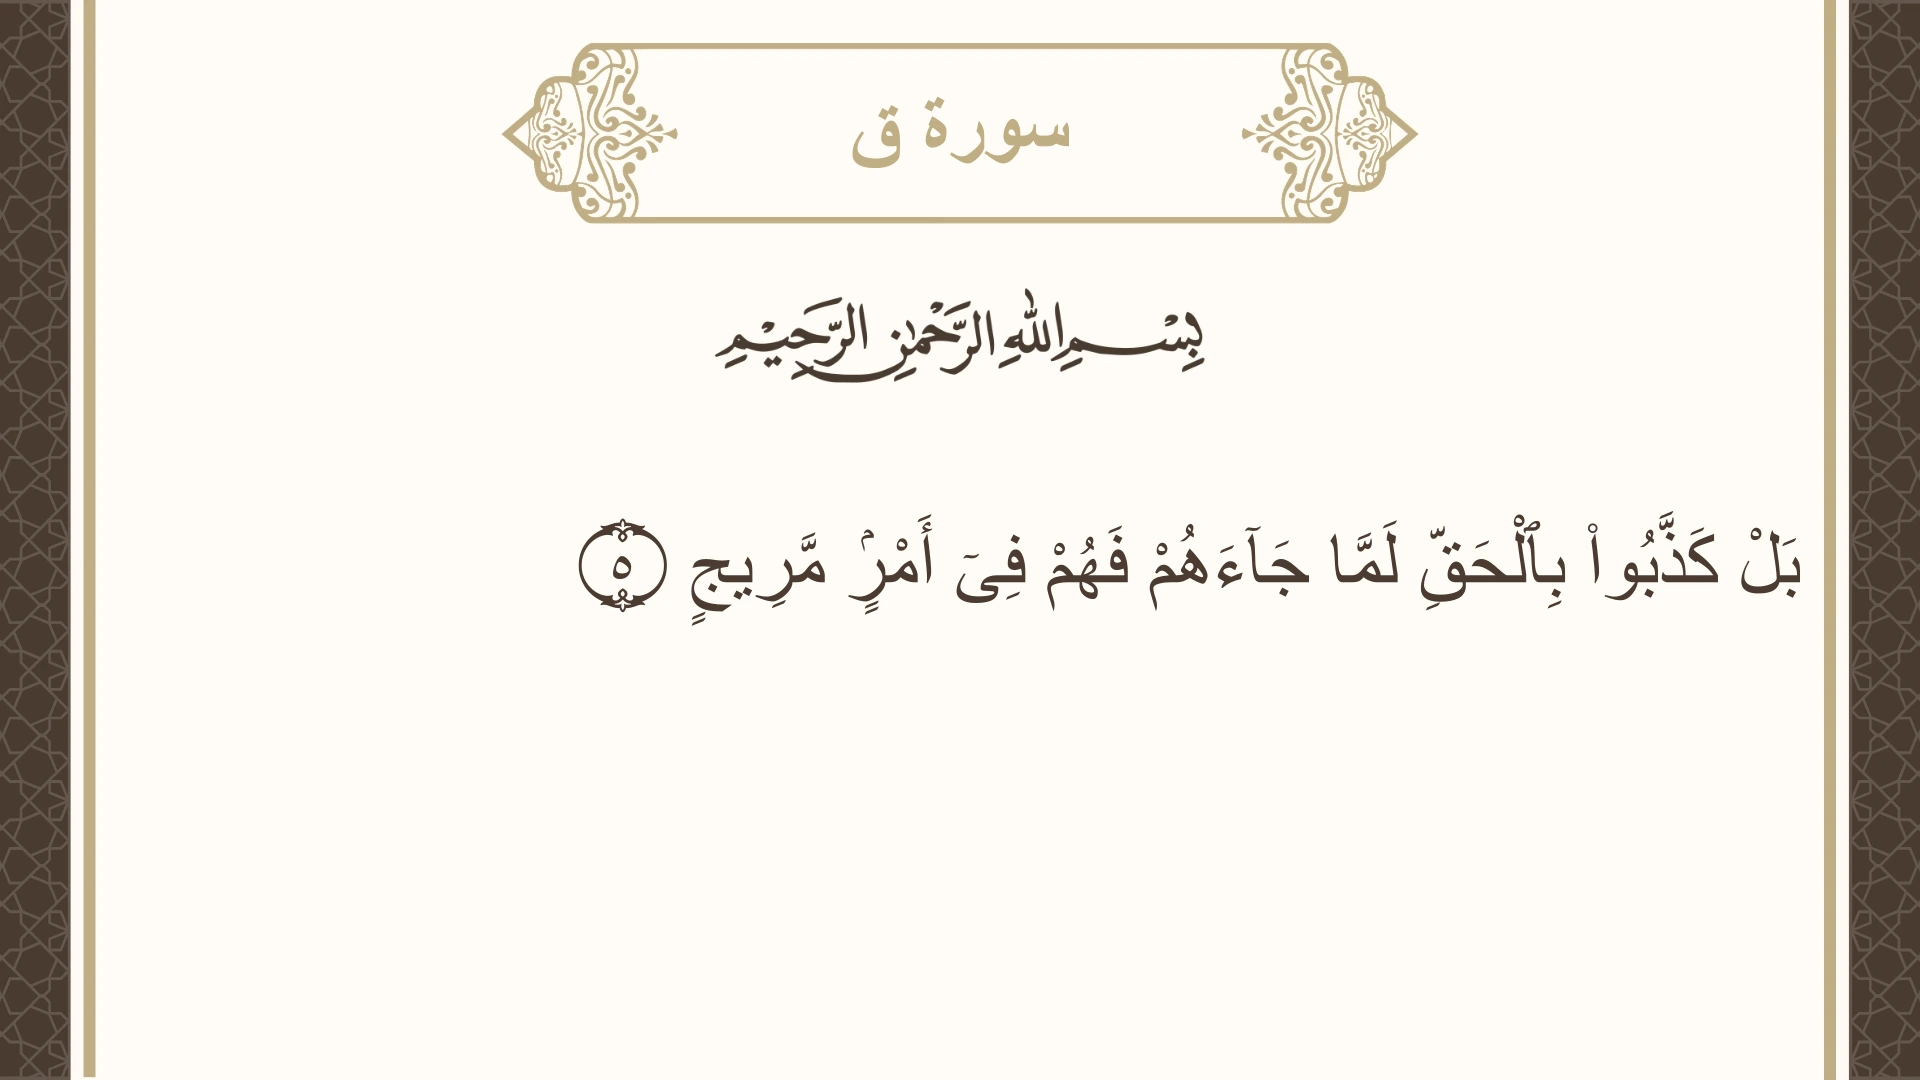 سورة ق
بِسْمِ اللهِ الرَّحْمٰنِ الرَّحِيْمِ
بَلْ كَذَّبُوا۟ بِٱلْحَقِّ لَمَّا جَآءَهُمْ فَهُمْ فِىٓ أَمْرٍۢ مَّرِيجٍ ٥